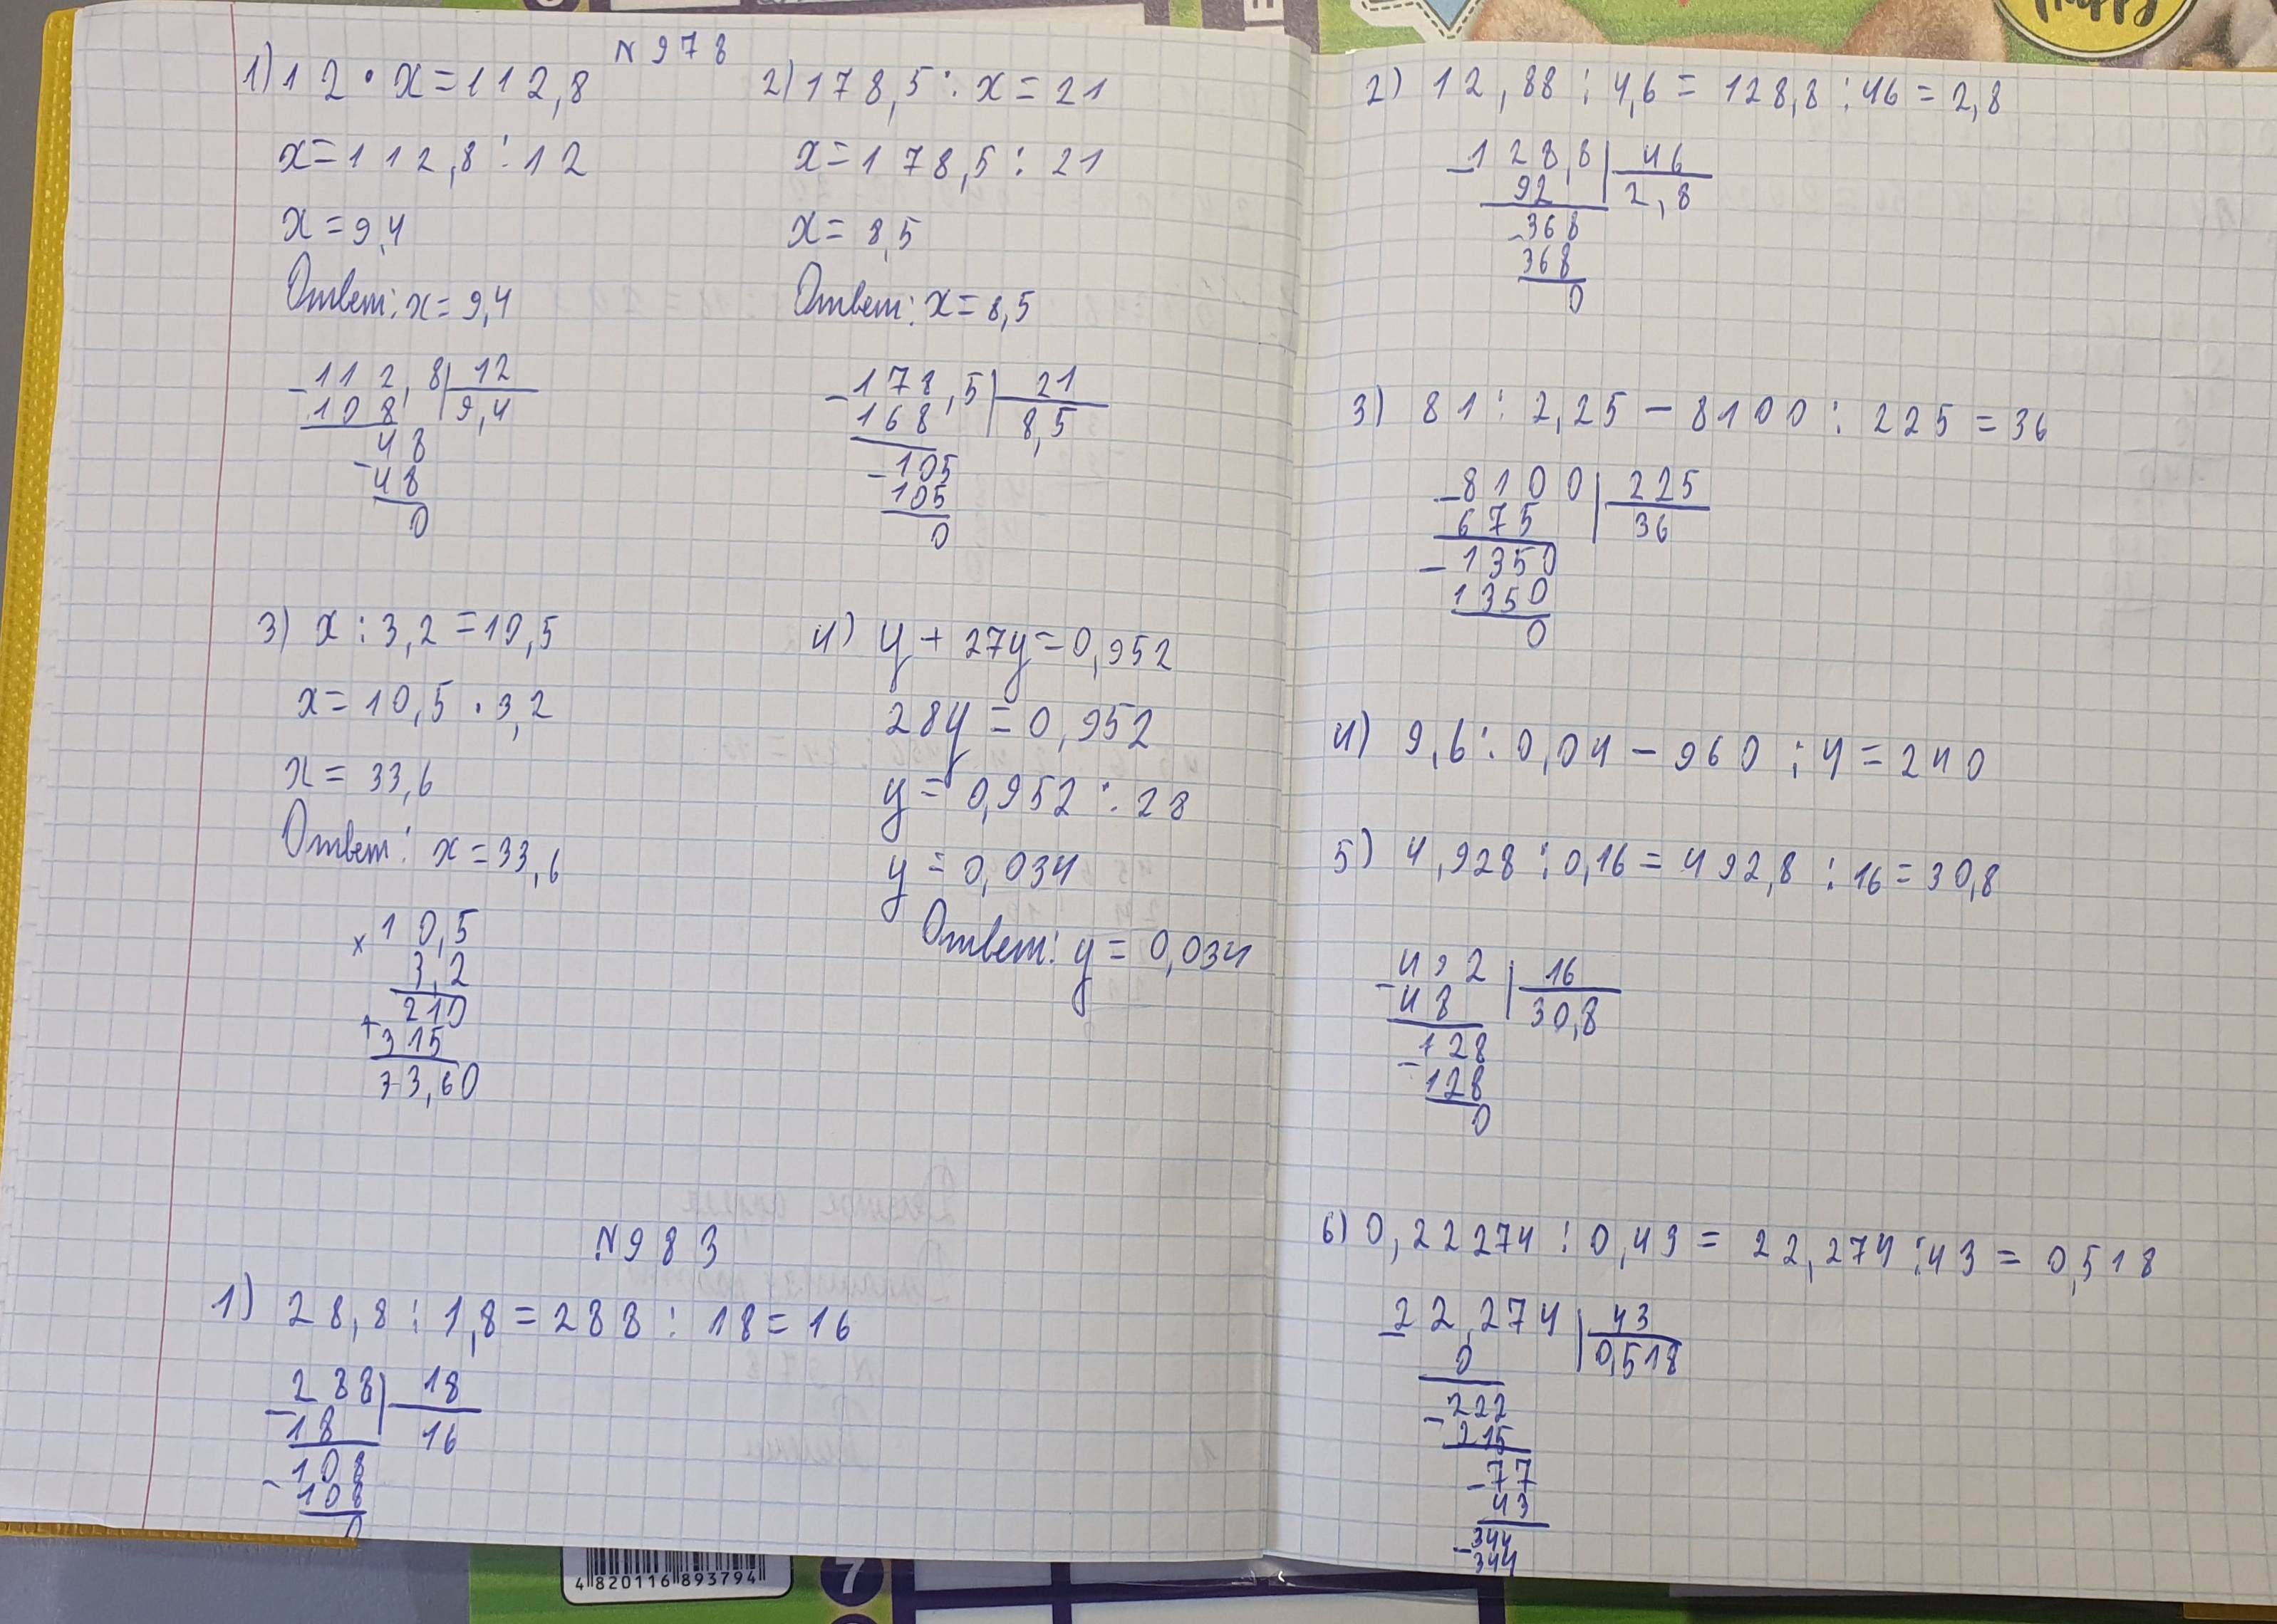 N 978
1) 12 · x = 112,8
x = 112,8 : 12
x = 9,4
Ответ: x = 9,4
- 112,8 | 12
108 | 9,4
- 48
48
0
2) 178,5 : x = 21
x = 178,5 : 21
x = 8,5
Ответ: x = 8,5
- 178,5 | 21
168 | 8,5
- 105
105
0
3) x : 3,2 = 10,5
x = 10,5 · 3,2
x = 33,6
Ответ: x = 33,6
x 10,5
3,2
+ 210
315
33,60
4) y + 27y = 0,952
28y = 0,952
y = 0,952 : 28
y = 0,034
Ответ: y = 0,034
N 983
1) 28,8 : 1,8 = 288 : 18 = 16
- 288 | 18
18 | 16
- 108
108
0
2) 12,88 : 4,6 = 128,8 : 46 = 2,8
- 128,8 | 46
92 | 2,8
- 368
368
0
3) 81 : 2,25 - 8100 : 225 = 36
- 8100 | 225
675 | 36
- 1350
1350
0
4) 9,6 : 0,04 - 960 : 4 = 240
5) 4,928 : 0,16 = 492,8 : 16 = 30,8
- 492 | 16
48 | 30,8
- 128
128
0
6) 0,22274 : 0,43 = 22,274 : 43 = 0,518
- 22,274 | 43
0 | 0,518
- 222
215
- 77
43
- 344
344
Happy
4 820116 893794
7